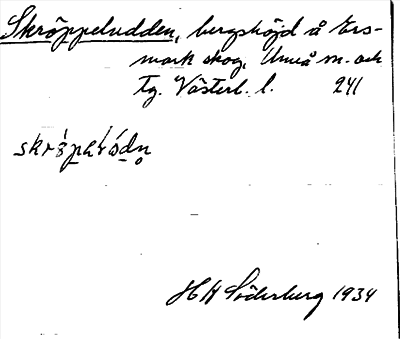 Skröppeludden, bergshöjd å Ers-
mark skog, Umeå sn. och
tg. Västerb. l. 241
H H Söderberg 1934